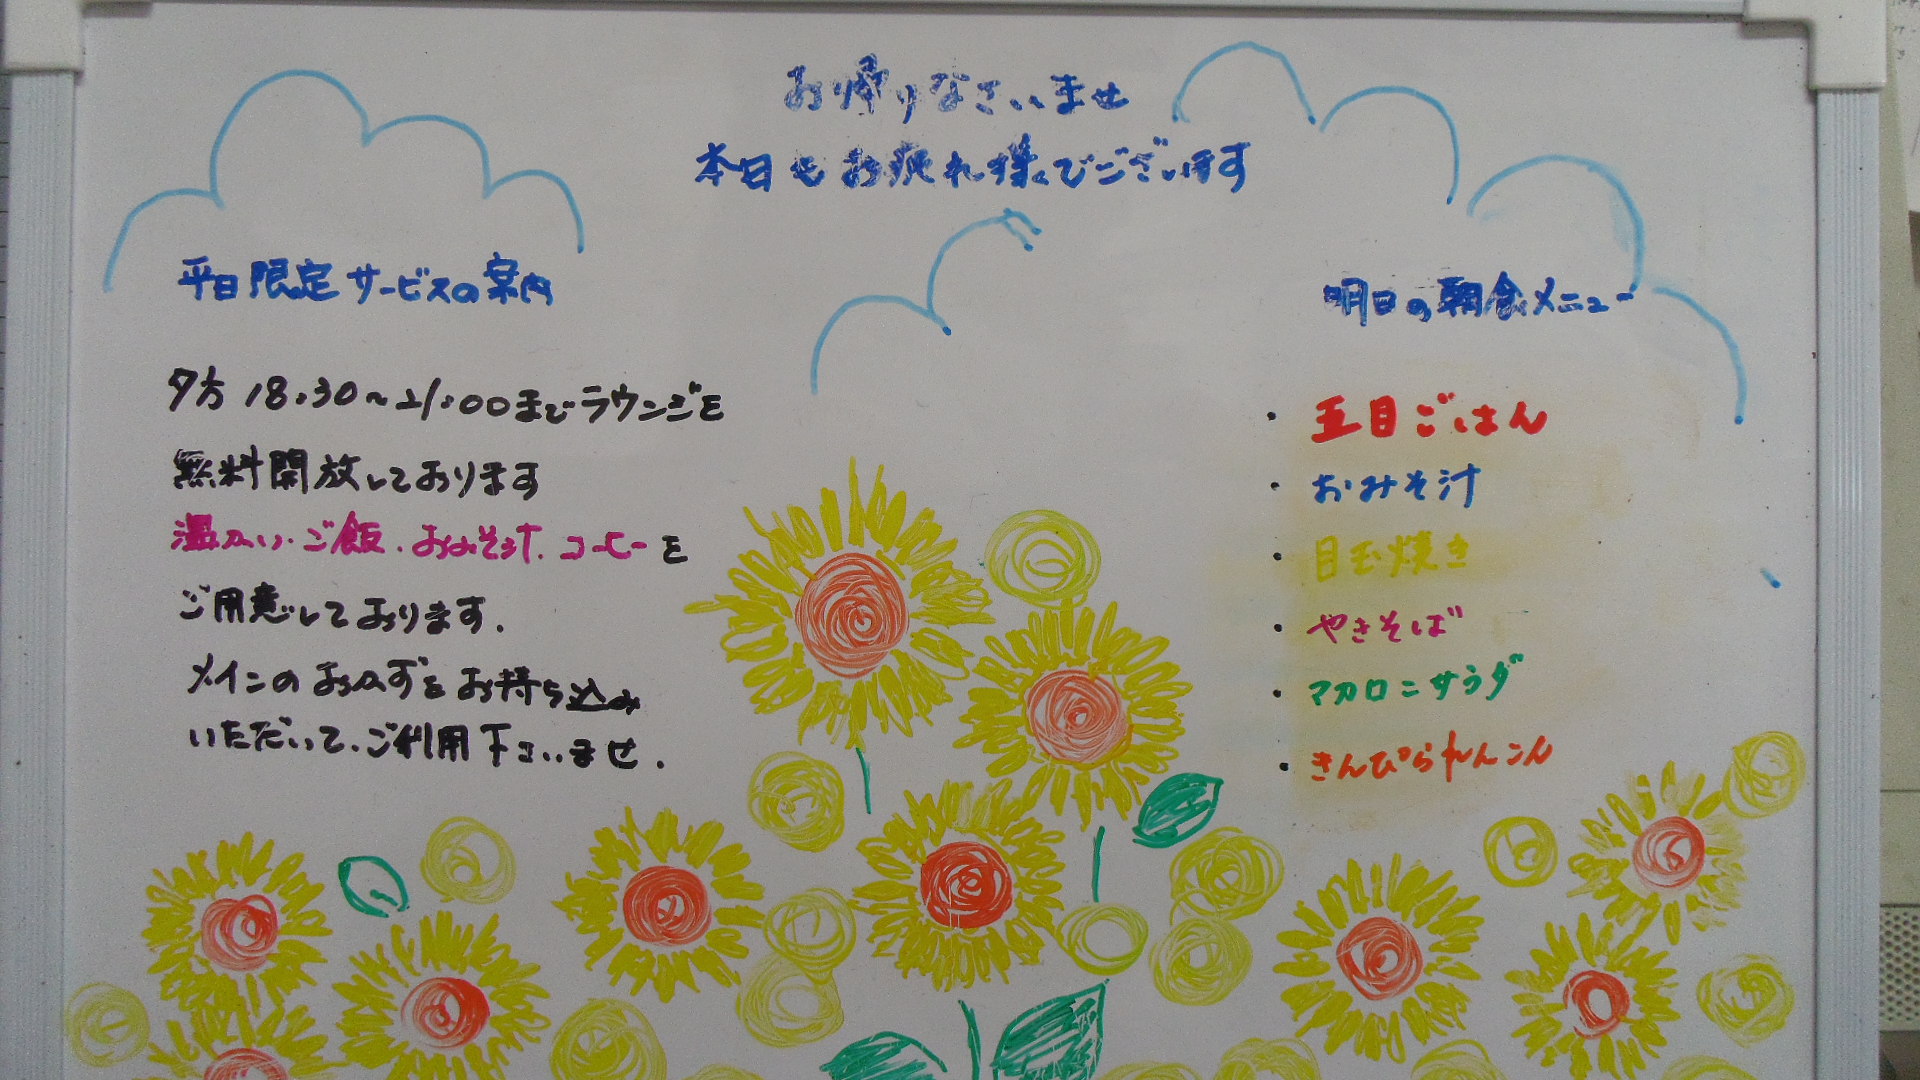 お帰りなさいませ
本日もお疲れ様でございます
平日限定サービスの案内
夕方 18:30～21:00までラウンジを
無料開放しております
温かい・ご飯・おみそ汁・コーヒーを
ご用意しております.
メインのおかずをお持ち込み
いただいて、ご利用下さいませ.
明日の朝食メニュー
・五目ごはん
・おみそ汁
・目玉焼き
・やきそば
・マカロニサラダ
・きんぴられんこん